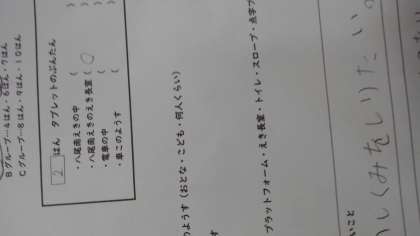 Bグループー4はん・6はん・7はん
Cグループー8はん・9はん・10はん
2 はん　タブレットのぶんたん
・八尾南えきの中　（　　）
・八尾南えきのえき長室（ 〇 ）
・電車の中　（　　）
・車このようす　（
のようす（おとな・こども・何人くらい）
す
プラットフォーム・えき長室・トイレ・スロープ・点字ブ
いこと
しくみをしりたい。